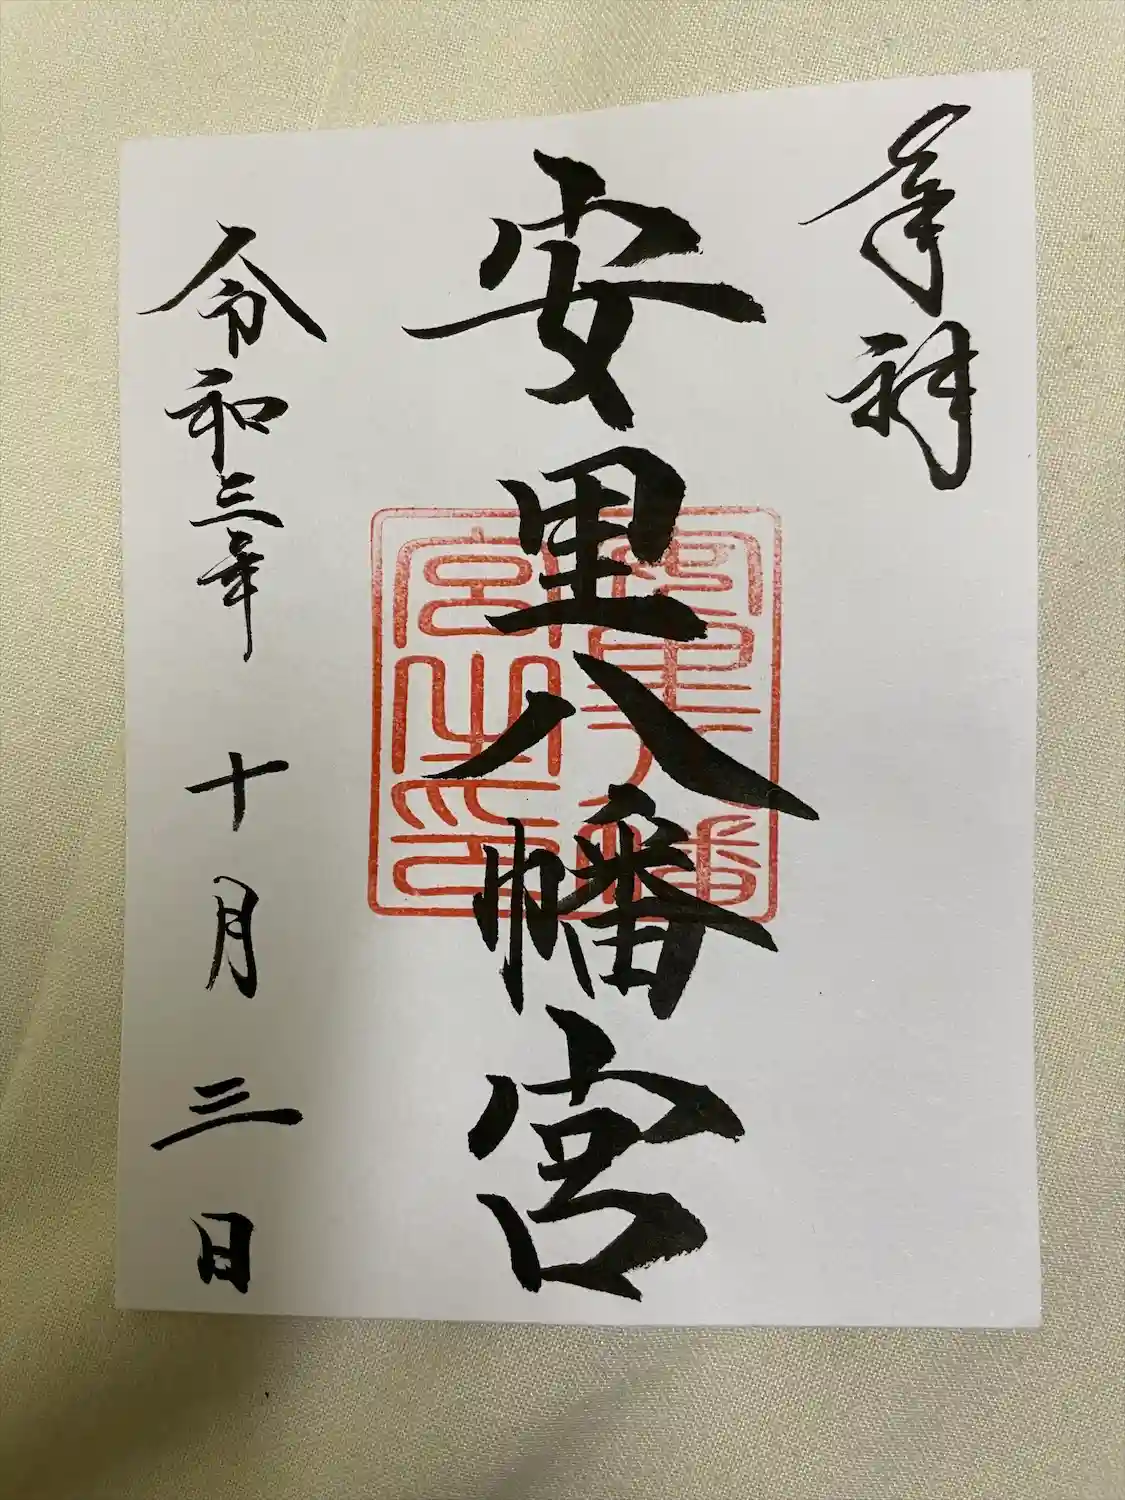 奉拝
安里八幡宮
安里八幡宮之印
令和三年 十月 三日